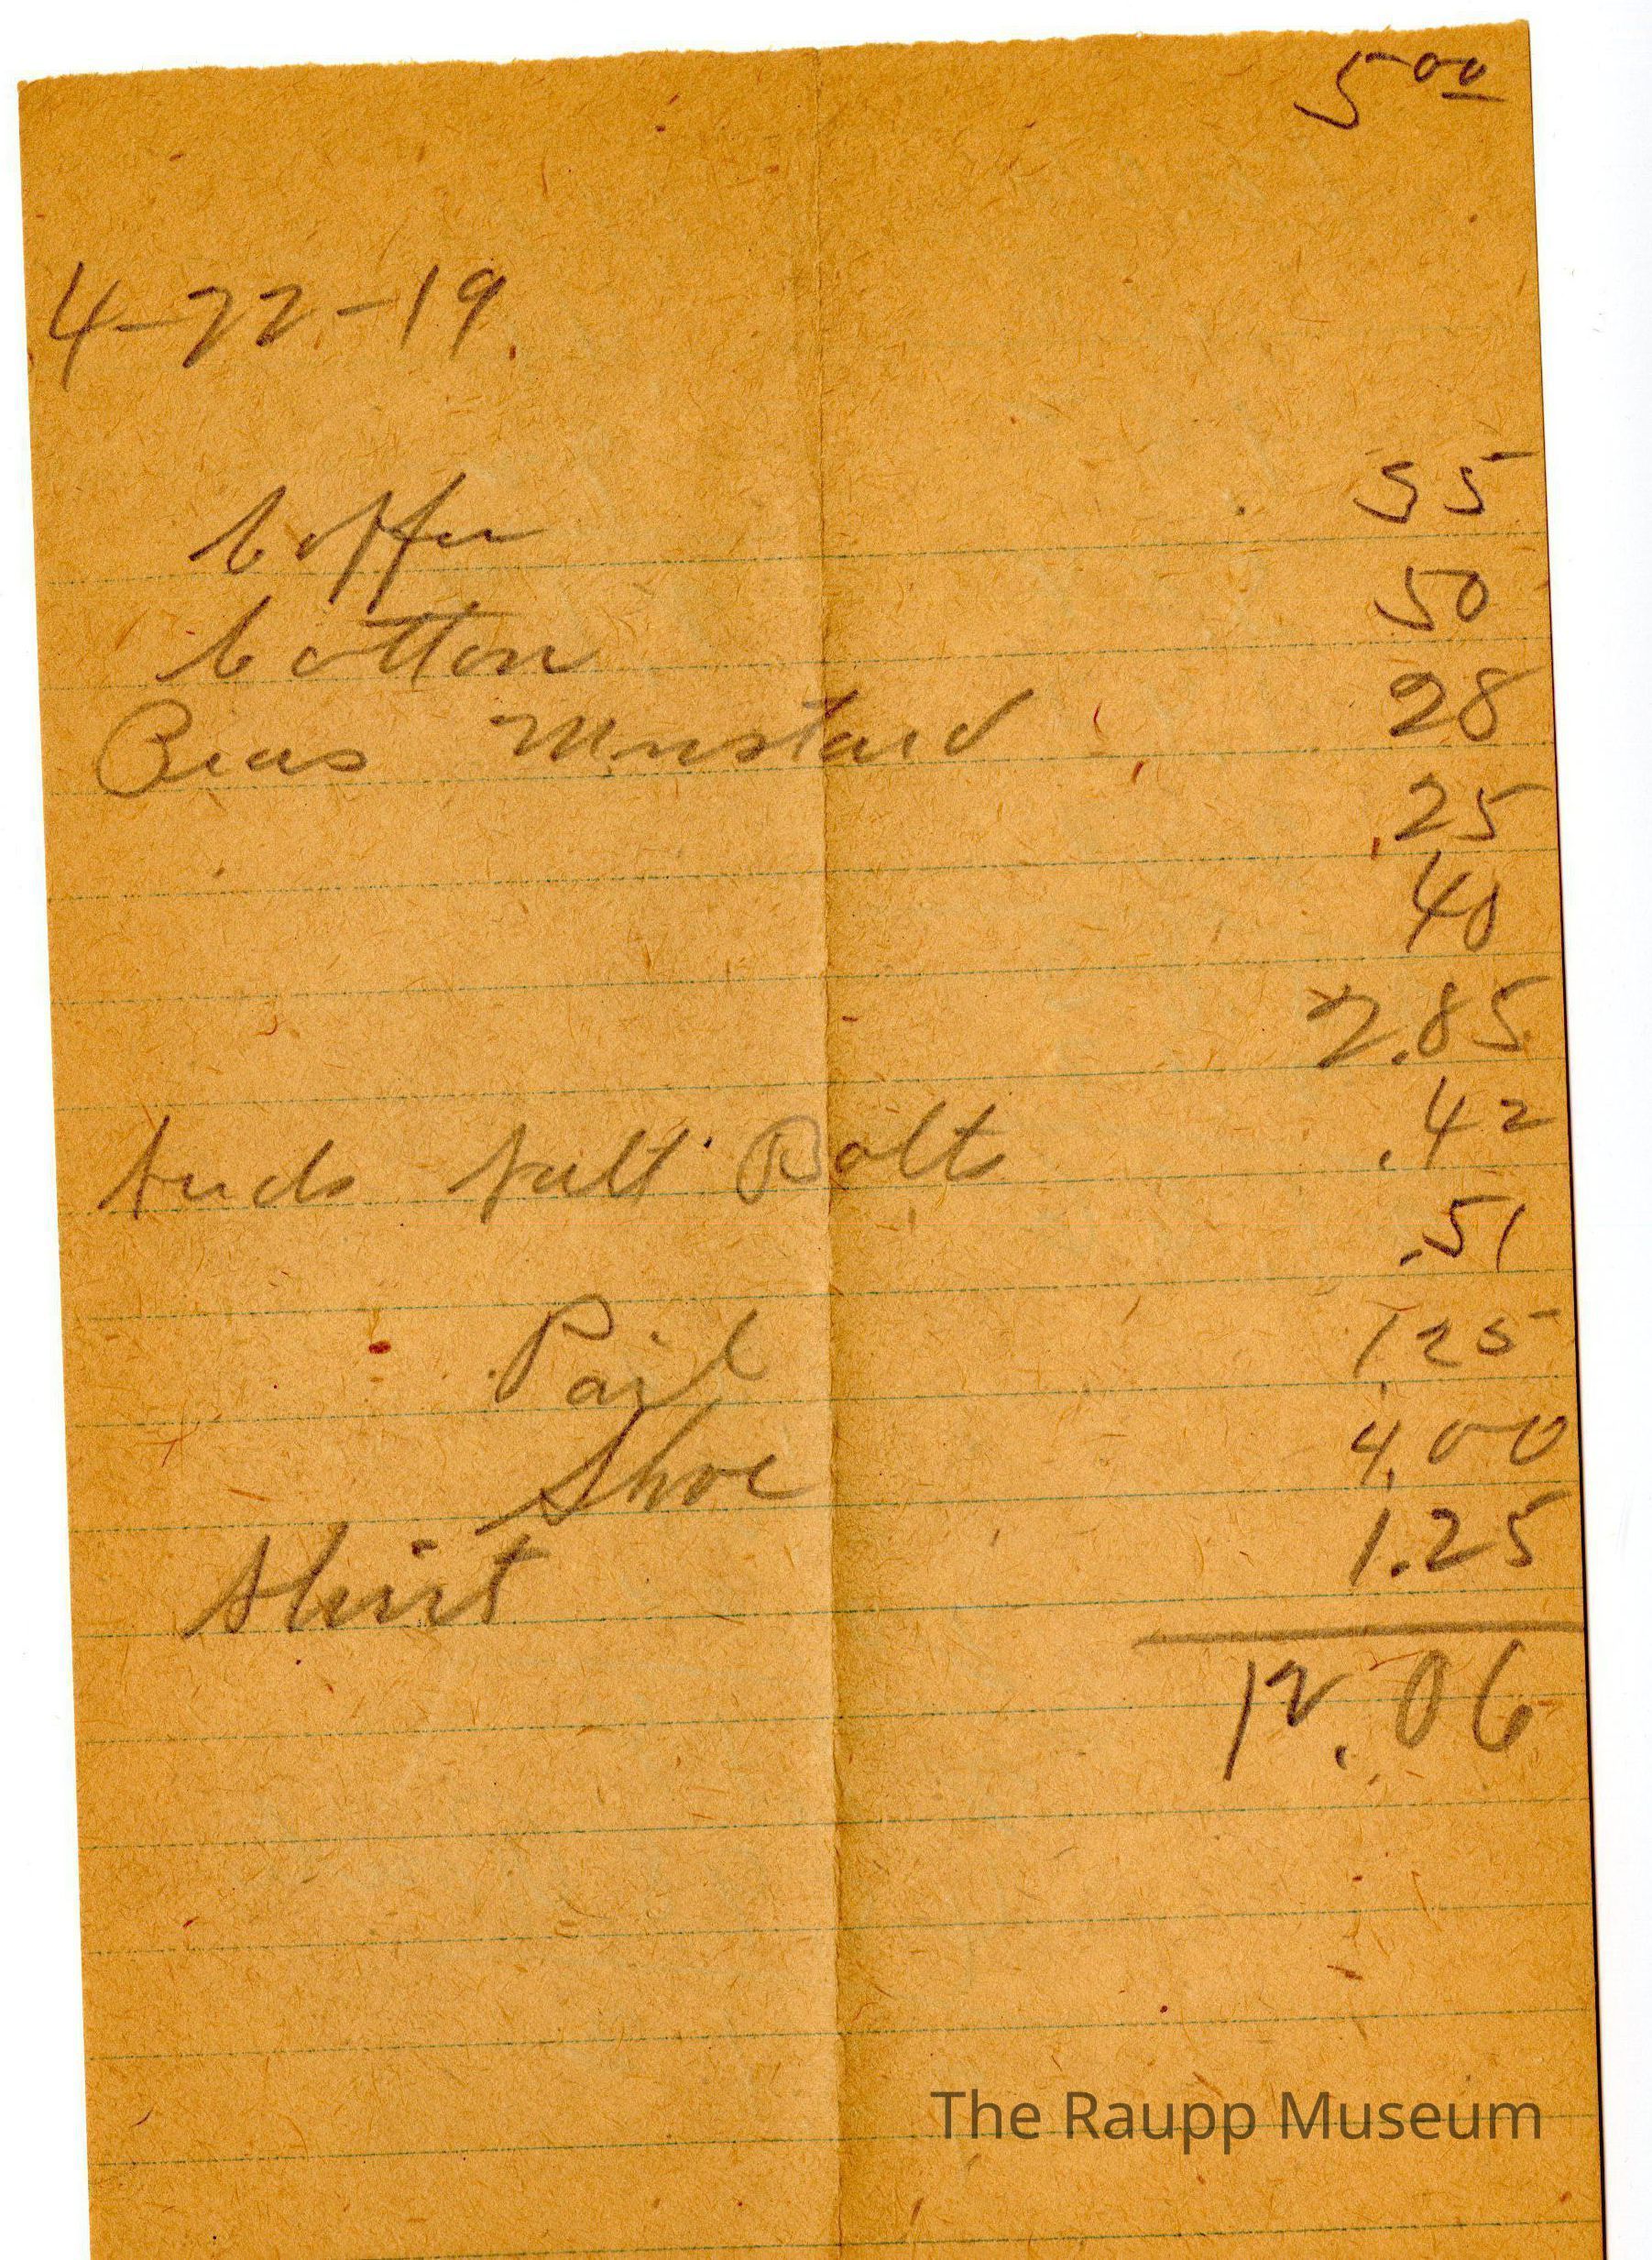 5 00
4-22-19
Coffee 55
Cotton 50
Peas Mustard 28
25
40
2.85
Salt Bolts .42
.51
Pail 1.25
Shoe 4.00
Shirt 1.25
12.06
The Raupp Museum